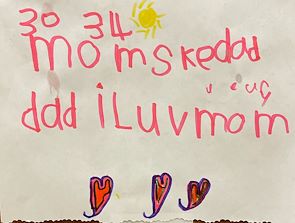 30 34
momskedad
dad iLuvmom